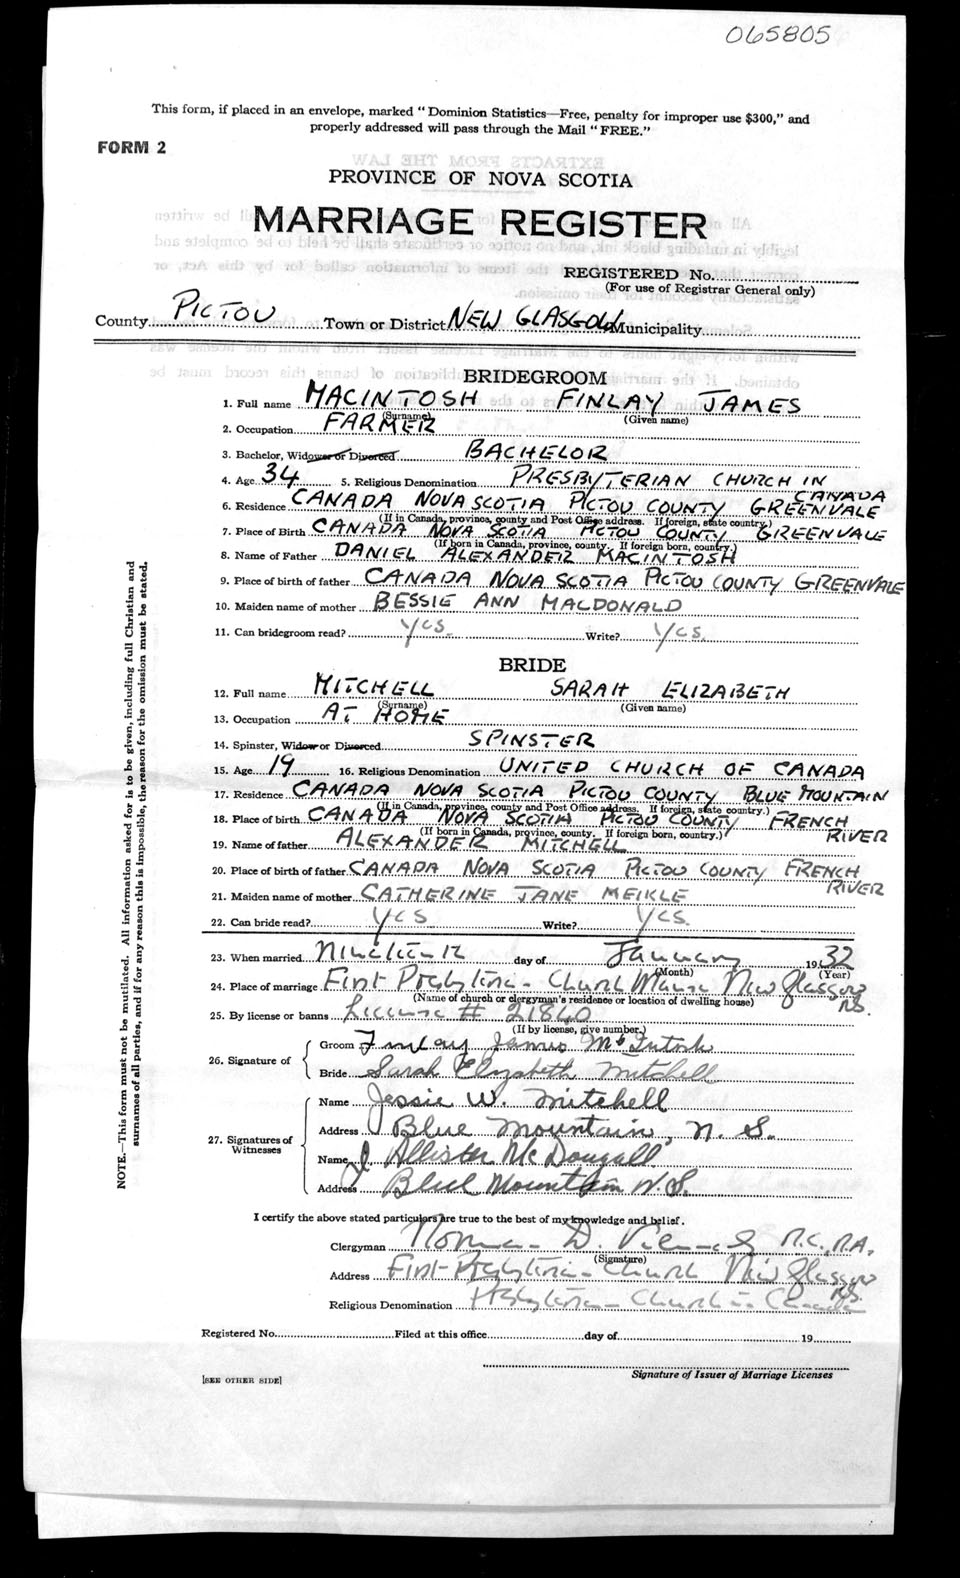 065805
This form, if placed in an envelope, marked "Dominion Statistics—Free, penalty for improper use $300," and
properly addressed will pass through the Mail "FREE."
FORM 2
PROVINCE OF NOVA SCOTIA
MARRIAGE REGISTER
REGISTERED No.
(For use of Registrar General only)
County PICTOU Town or District NEW GLASGOW Municipality
BRIDEGROOM
1. Full name MACINTOSH FINLAY JAMES
(Surname) (Given name)
2. Occupation FARMER
3. Bachelor, Widower or Divorced BACHELOR
4. Age 34 5. Religious Denomination PRESBYTERIAN CHURCH IN CANADA
6. Residence CANADA NOVA SCOTIA PICTOU COUNTY GREENVALE
(If in Canada, province, county and Post Office address. If foreign, state country.)
7. Place of Birth CANADA NOVA SCOTIA PICTOU COUNTY GREENVALE
(If born in Canada, province, county. If foreign born, country.)
8. Name of Father DANIEL ALEXANDER MACINTOSH
9. Place of birth of father CANADA NOVA SCOTIA PICTOU COUNTY GREENVALE
10. Maiden name of mother BESSIE ANN MACDONALD
11. Can bridegroom read? Yes. Write? Yes.
BRIDE
12. Full name MITCHELL SARAH ELIZABETH
(Surname) (Given name)
13. Occupation AT HOME
14. Spinster, Widow or Divorced SPINSTER
15. Age 19 16. Religious Denomination UNITED CHURCH OF CANADA
17. Residence CANADA NOVA SCOTIA PICTOU COUNTY BLUE MOUNTAIN
(If in Canada, province, county and Post Office address. If foreign, state country.)
18. Place of birth CANADA NOVA SCOTIA PICTOU COUNTY FRENCH RIVER
(If born in Canada, province, county. If foreign born, country.)
19. Name of father ALEXANDER MITCHELL
20. Place of birth of father CANADA NOVA SCOTIA PICTOU COUNTY FRENCH RIVER
21. Maiden name of mother CATHERINE JANE MEIKLE
22. Can bride read? Yes Write? Yes.
23. When married Nineteenth day of January 1932
(Month) (Year)
24. Place of marriage First Presbyterian Church Manse New Glasgow N.S.
(Name of church or clergyman's residence or location of dwelling house)
25. By license or banns License # 21840
(If by license, give number.)
26. Signature of
Groom Finlay James McIntosh
Bride Sarah Elizabeth Mitchell
27. Signatures of Witnesses
Name Jessie W. Mitchell
Address Blue Mountain, N. S.
Name J. Allister McDougall
Address Blue Mountain N.S.
I certify the above stated particulars are true to the best of my knowledge and belief.
Clergyman Norman D.
(Signature)
Address First Presbyterian Church New Glasgow N.S.
Religious Denomination Presbyterian Church in Canada
Registered No. Filed at this office day of 19
Signature of Issuer of Marriage Licenses
[SEE OTHER SIDE]
NOTE.—This form must not be mutilated. All information asked for is to be given, including full Christian and
surnames of all parties, and if for any reason this is impossible, the reason for the omission must be stated.